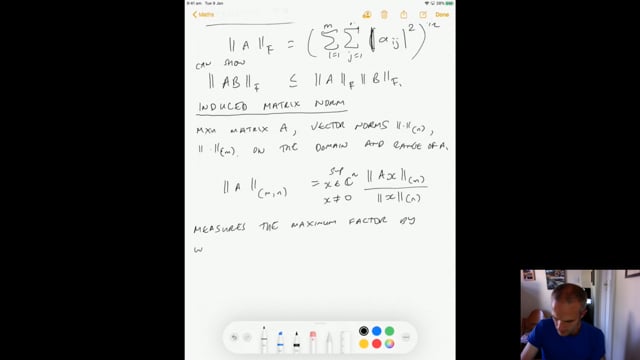 9:41 am Tue 9 Jan
28%
Maths
Done
‖A‖_F = ( Σ_{i=1}^{m} Σ_{j=1}^{n} |a_{ij}|^2 )^{1/2}
CAN SHOW
‖AB‖_F ≤ ‖A‖_F ‖B‖_F.
INDUCED MATRIX NORM
MXN MATRIX A, VECTOR NORMS ‖·‖_(n),
‖·‖_(m). ON THE DOMAIN AND RANGE OF A.
‖A‖_(m,n) = sup_{x ∈ ℂ^n, x ≠ 0} ‖Ax‖_(m) / ‖x‖_(n)
MEASURES THE MAXIMUM FACTOR BY
W